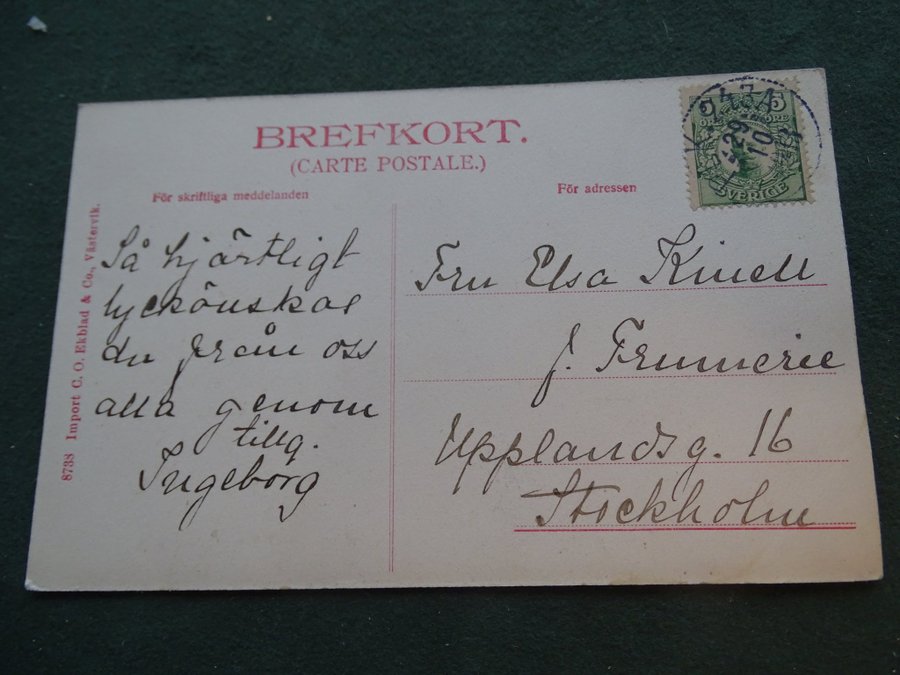 BREFKORT.
(CARTE POSTALE.)
För skriftliga meddelanden
För adressen
Så hjärtligt
lyckönskas
du från oss
alla genom
tillg.
Ingeborg
Fru Elsa Kinell
f. Frumerie
Upplandsg. 16
Stockholm
8738 Import C. O. Ekblad & Co., Västervik.
5
ÖRE
SVERIGE
29
10